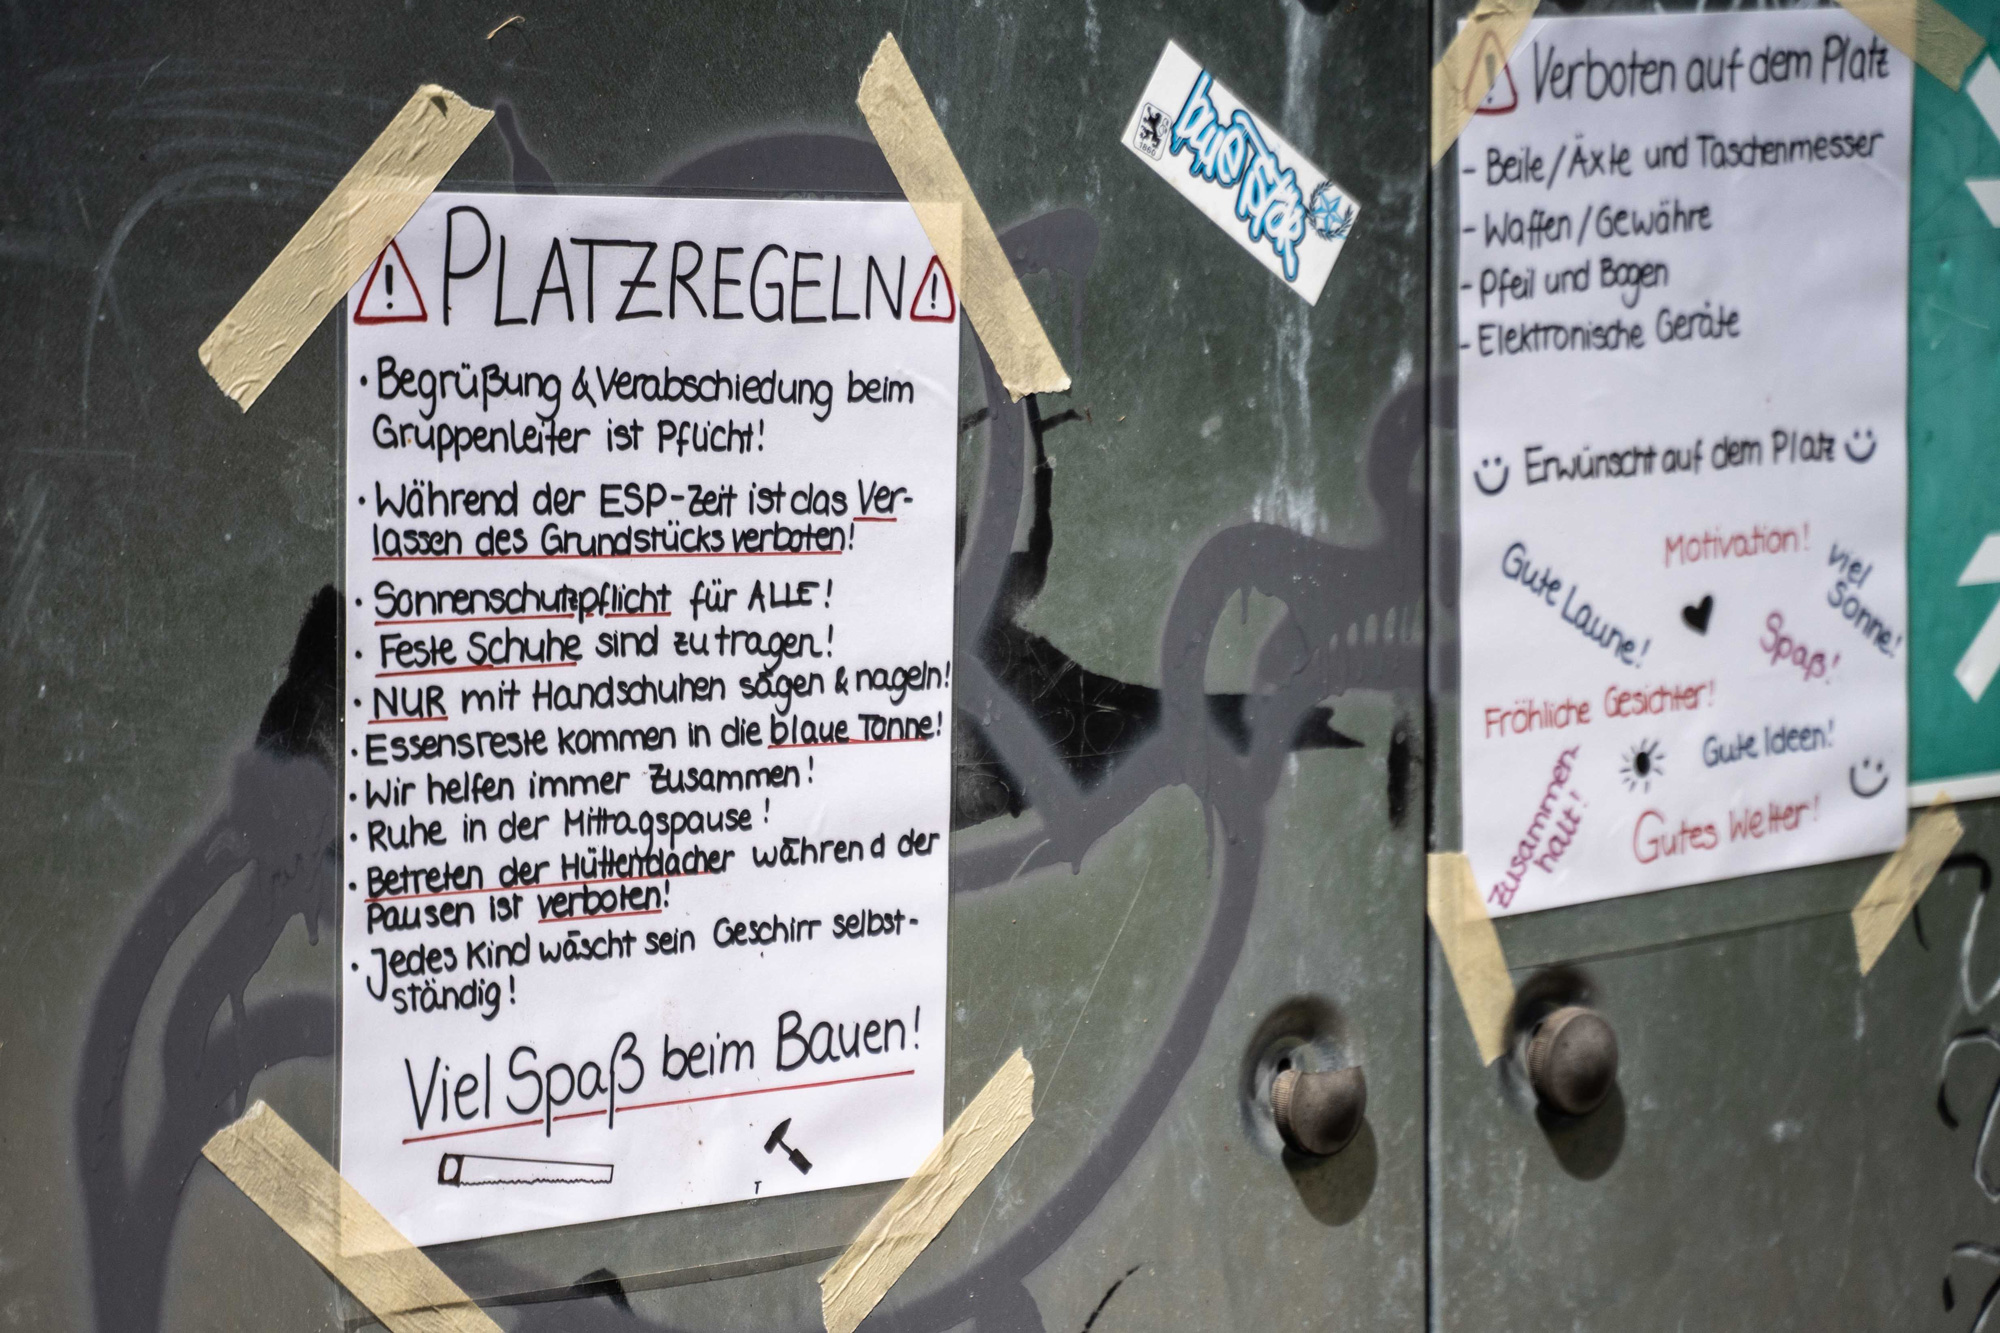 PLATZREGELN
· Begrüßung & Verabschiedung beim
Gruppenleiter ist Pflicht!
· Während der ESP-Zeit ist das Ver-
lassen des Grundstücks verboten!
· Sonnenschutzpflicht für ALLE!
· Feste Schuhe sind zu tragen!
· NUR mit Handschuhen sägen & nageln!
· Essensreste kommen in die blaue Tonne!
· Wir helfen immer Zusammen!
· Ruhe in der Mittagspause!
· Betreten der Hüttendächer während der
Pausen ist verboten!
· Jedes Kind wäscht sein Geschirr selbst-
ständig!
Viel Spaß beim Bauen!
1860
Verboten auf dem Platz
- Beile/Äxte und Taschenmesser
- Waffen/Gewähre
- Pfeil und Bogen
- Elektronische Geräte
Erwünscht auf dem Platz
Motivation!
Gute Laune!
Viel
Sonne!
Spaß!
Fröhliche Gesichter!
Gute Ideen!
Zusammen
halt!
Gutes Wetter!